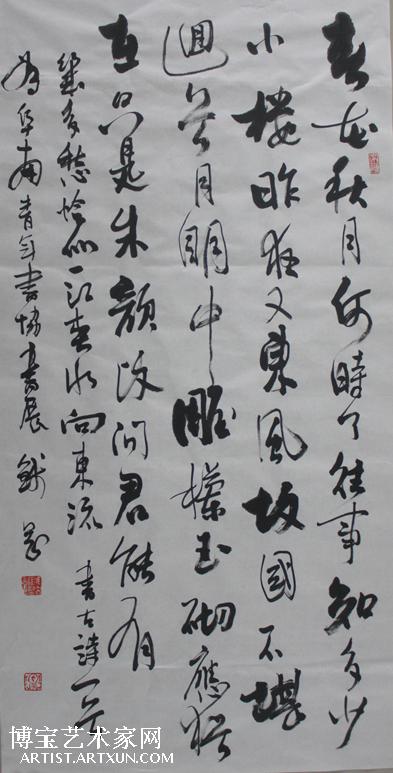 春花秋月何時了往事知多少
小樓昨夜又東風故國不堪
迴首月明中雕欄玉砌應猶
在只是朱顏改问君能有
幾多愁恰似一江春水向東流 書古詩一首
为华南青年書協書展
博宝艺术家网
ARTIST.ARTXUN.COM